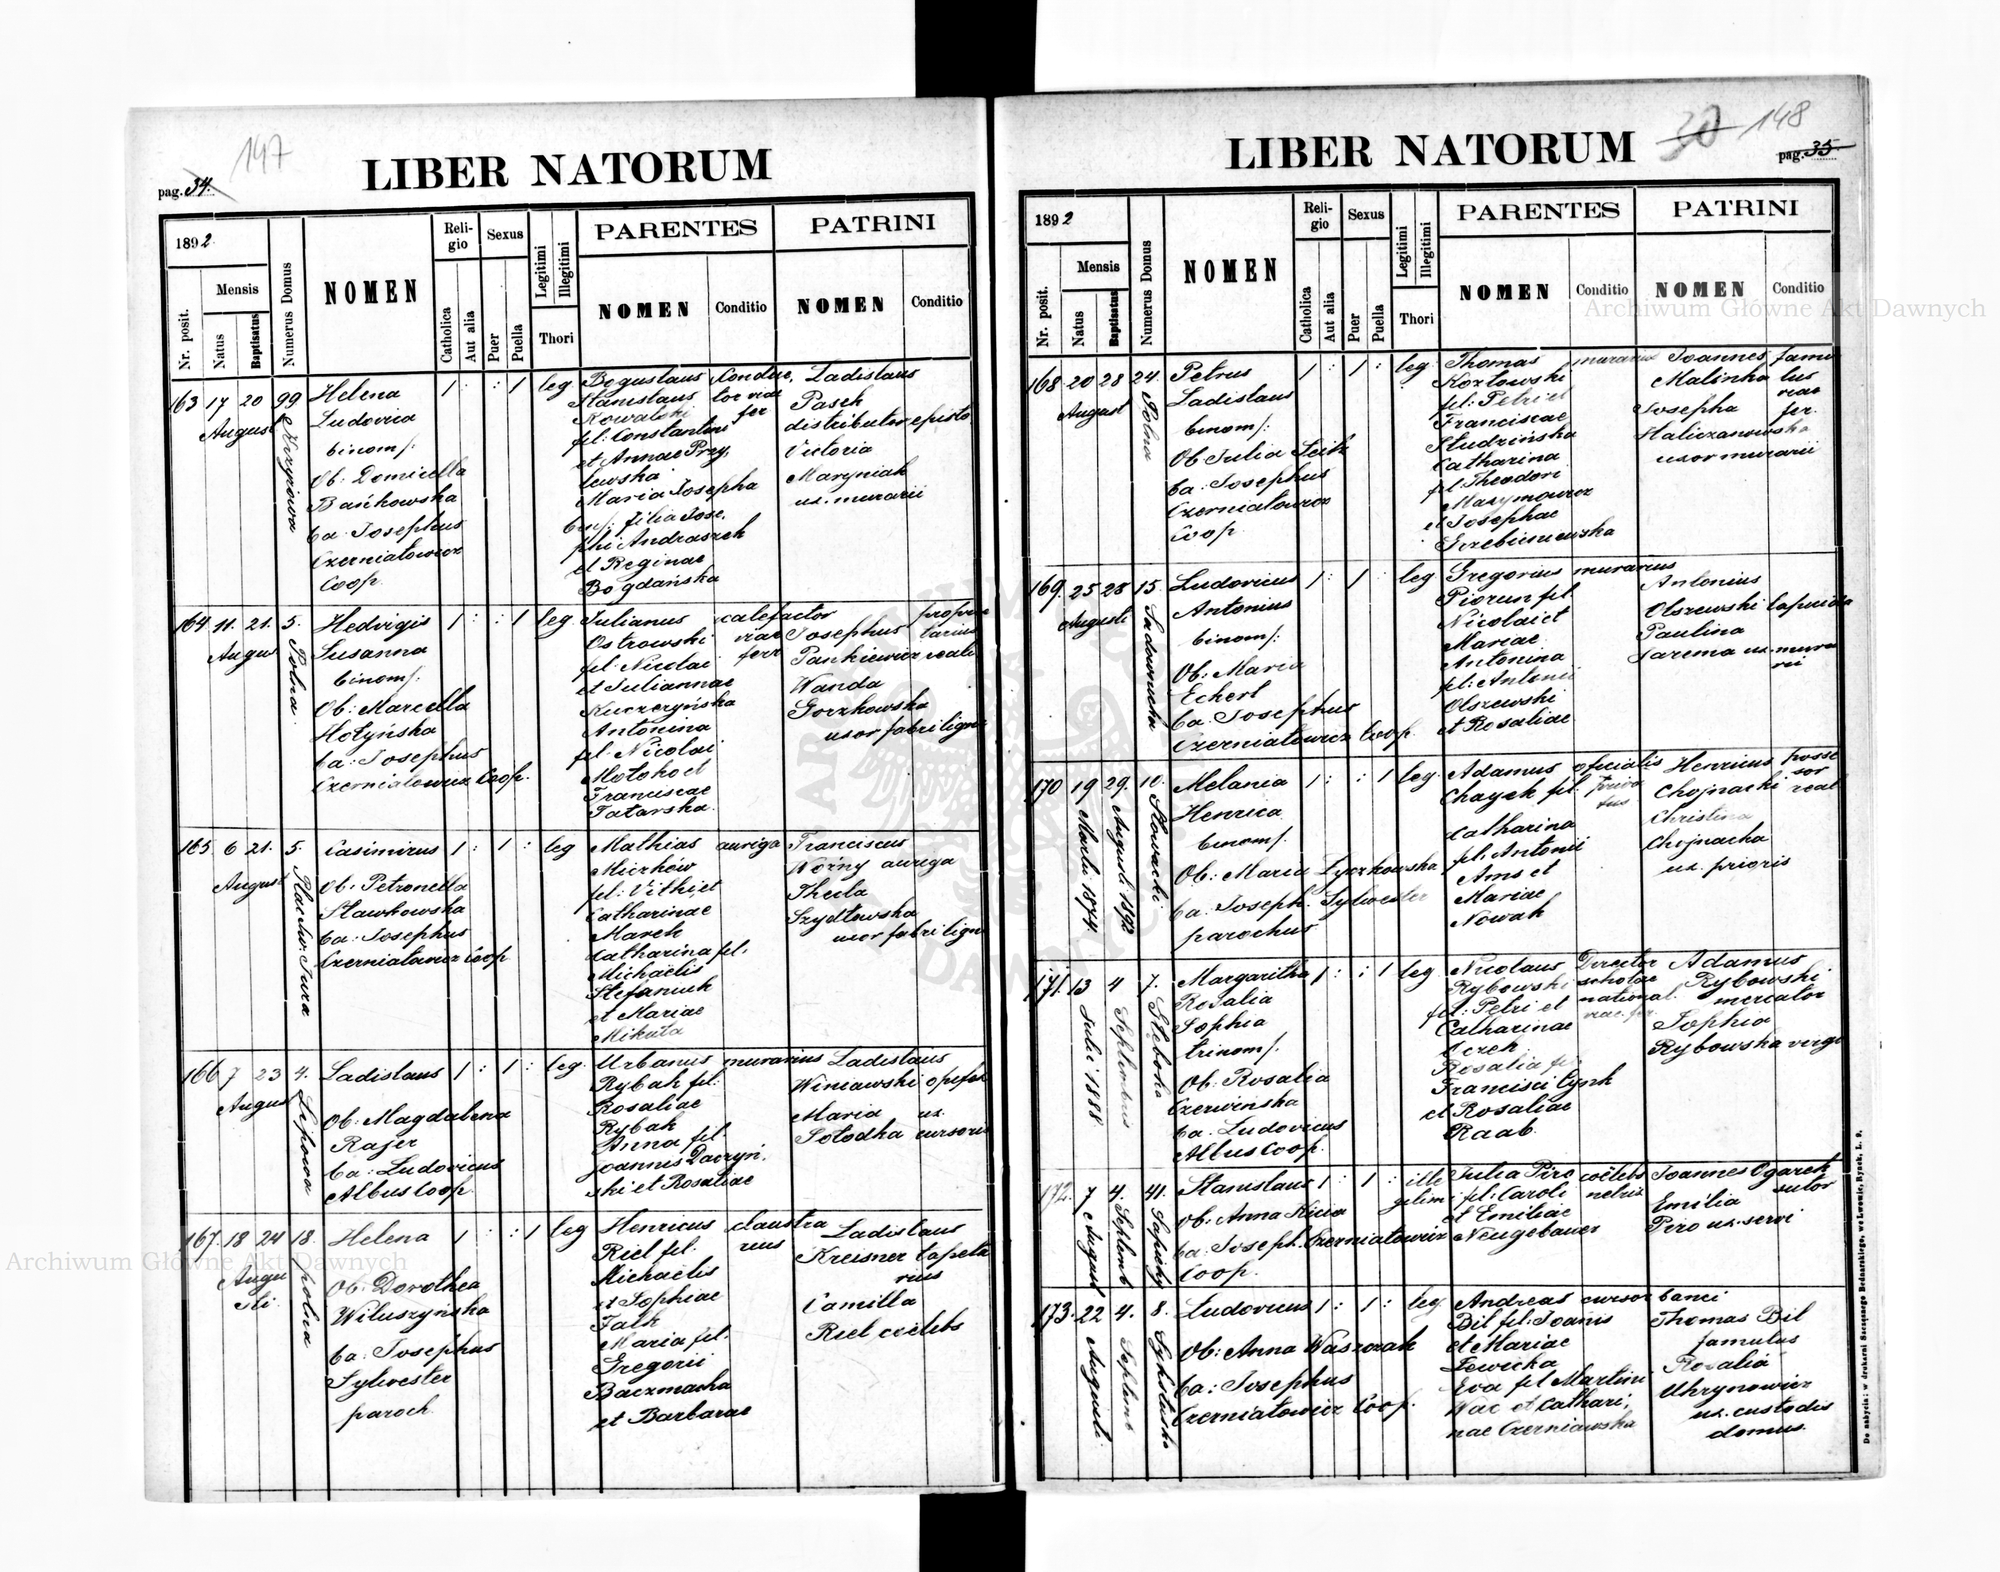 147
pag. 34.
LIBER NATORUM
1892
Mensis
Nr. posit.
Natus
Baptisatus
Numerus Domus
NOMEN
Religio
Catholica
Aut alia
Sexus
Puer
Puella
Legitimi
Illegitimi
Thori
PARENTES
NOMEN
Conditio
PATRINI
NOMEN
Conditio
163 17 20 99
August
Helena
Ludovica
binom/:
Ob: Domicella
Bańkowska
ba: Josephus
Czerniatowicz
Coop.
1 : : 1 leg
Boguslaus
Stanislaus
Kowalski
fil: Constantini
et Annae Przy,
lewska
Maria Josepha
bin/: filia Jose,
phi Andraszek
et Reginae
Bogdańska
Conduc,
tor viae
fer
Ladislaus
Pasek
distributor episto
Victoria
Maryniak
ux. murarii
164 11. 21. 5.
Augus
Polna
Hedvigis
Susanna
binom/:
Ob: Marcella
Hołyńska
ba: Josephus
Czerniatowicz Coop.
1 : : 1 leg
Julianus
Ostrowski
fil. Nicolai
et Juliannae
Kuczeryńska
Antonina
fil. Nicolai
Motoko et
Franciscae
Tatarska.
calefactor
viae
ferr
Josephus
Pankiewicz
Wanda
Gorzkowska
uxor fabri lign
proprie
tarius
reali
165 6 21. 5.
August
Casimirus
Ob: Petronella
Sławkowska
ba: Josephus
Czerniatowicz Coop
1 : 1 : leg
Mathias
Miczków
fil: Vithi, et
Catharinae
Marek
Catharina fil.
Michaelis
Stefaniuk
et Mariae
Mikuta
auriga
Franciscus
Nożny auriga
Thecla
Szydłowska
uxor fabri lign
166 7 23 4.
August
Lipowa
Ladislaus
Ob: Magdalena
Rajer
ba: Ludovicus
Albus Coop.
1 : 1 : leg.
Urbanus
Rybak fil:
Rosaliae
Rybak
Anna fil.
Joannis Daczyń,
ski et Rosaliae
murarius
Ladislaus
Winiawski opifex
Maria ux.
Sołodka cursoris
167. 18 24 18.
Augu
sti
polna
Helena
Ob: Dorothea
Wiluszyńska
ba: Josephus
Sylwester
paroch.
1 : : 1 leg
Henricus
Riel fil.
Michaelis
et Sophiae
Falk
Maria fil.
Gregorii
Baczmacha
et Barbarae
claustra
rius
Ladislaus
Kreisner tapeta
rius
Camilla
Riel coelebs
30 148
pag. 35.
LIBER NATORUM
1892
Mensis
Nr. posit.
Natus
Baptisatus
Numerus Domus
NOMEN
Religio
Catholica
Aut alia
Sexus
Puer
Puella
Legitimi
Illegitimi
Thori
PARENTES
NOMEN
Conditio
PATRINI
NOMEN
Conditio
168 20 28 24.
August
Polna
Petrus
Ladislaus
binom/:
Ob Julia Seitz
ba: Josephus
Czerniatowicz
Coop.
1 : 1 : leg
Thomas
Kozłowski
fil: Petri et
Franciscae
Studzińska
Catharina
fil Theodori
Maxymowicz
et Josephae
Grzebieniewska
murarius
Joannes
Malinka
Josepha
Haliczanowska
uxor murarii
famu
lus
viae
fer.
169. 25 28 15.
Augusti
Sadownicka
Ludovicus
Antonius
binom/:
Ob: Maria
Eckert
ba: Josephus
Czerniatowicz Coop.
1 : 1 : leg
Gregorius
Piorun fil.
Nicolai et
Mariae
Antonina
fil: Antonii
Olszewski
et Rosaliae
murarius
Antonius
Olszewski lapicida
Paulina
Jarema ux. mura
rii
170 19 29. 10.
Martii 1874.
Augusti 1892
Słowacki.
Melania
Henrica
binom/:
Ob: Maria Lyczkowska
ba: Joseph. Sylwester
parochus
1 : : 1 leg.
Adamus
Chayek fil:
Catharina
fil: Antonii
Ams et
Mariae
Nowak
oficialis
priva
tus
Henricus
Chojnacki
Christina
Chojnacka
ux. prioris
posse
sor
real
171. 13 4 7.
Julii 1888
Septembris
Stebska
Margaritha
Rosalia
Sophia
trinom/:
Ob: Rosalia
Czerwińska
ba: Ludovicus
Albus Coop.
1 : : 1 leg
Nicolaus
Rybowski
fil: Petri et
Catharinae
Jerek
Rosalia fil
Francisci Cynk
et Rosaliae
Raab.
Director
scholae
national.
viae. fer.
Adamus
Rybowski
mercator
Sophia
Rybowska virgo
172. 7 4. 41.
August
Septemb
Sapiehy
Stanislaus
Ob: Anna Kina
ba: Joseph. Czerniatowicz
Coop.
1 : 1 : ille
gitim
Julia Piro
fil: Caroli
et Emiliae
Neugebauer
coelebs
netrix
Joannes Ogarek
sutor
Emilia
Piro ux. servi
173. 22 4. 8.
Augusti.
Septemb
Sykstuska
Ludovicus
Ob: Anna Waszczak
ba: Josephus
Czerniatowicz Coop.
1 : 1 : leg
Andreas
Bil fil: Joanis
et Mariae
Lewicka
Eva fil Martini
Wac et Cathari,
nae Czerniawska
cursor banci
Thomas Bil
famulus
Rosalia
Uhrynowicz
ux. custodis
domus.
Do nabycia: w drukarni Szczęsnego Bednarskiego, we Lwowie, Rynek, L. 9.
Archiwum Główne Akt Dawnych
Archiwum Główne Akt Dawnych